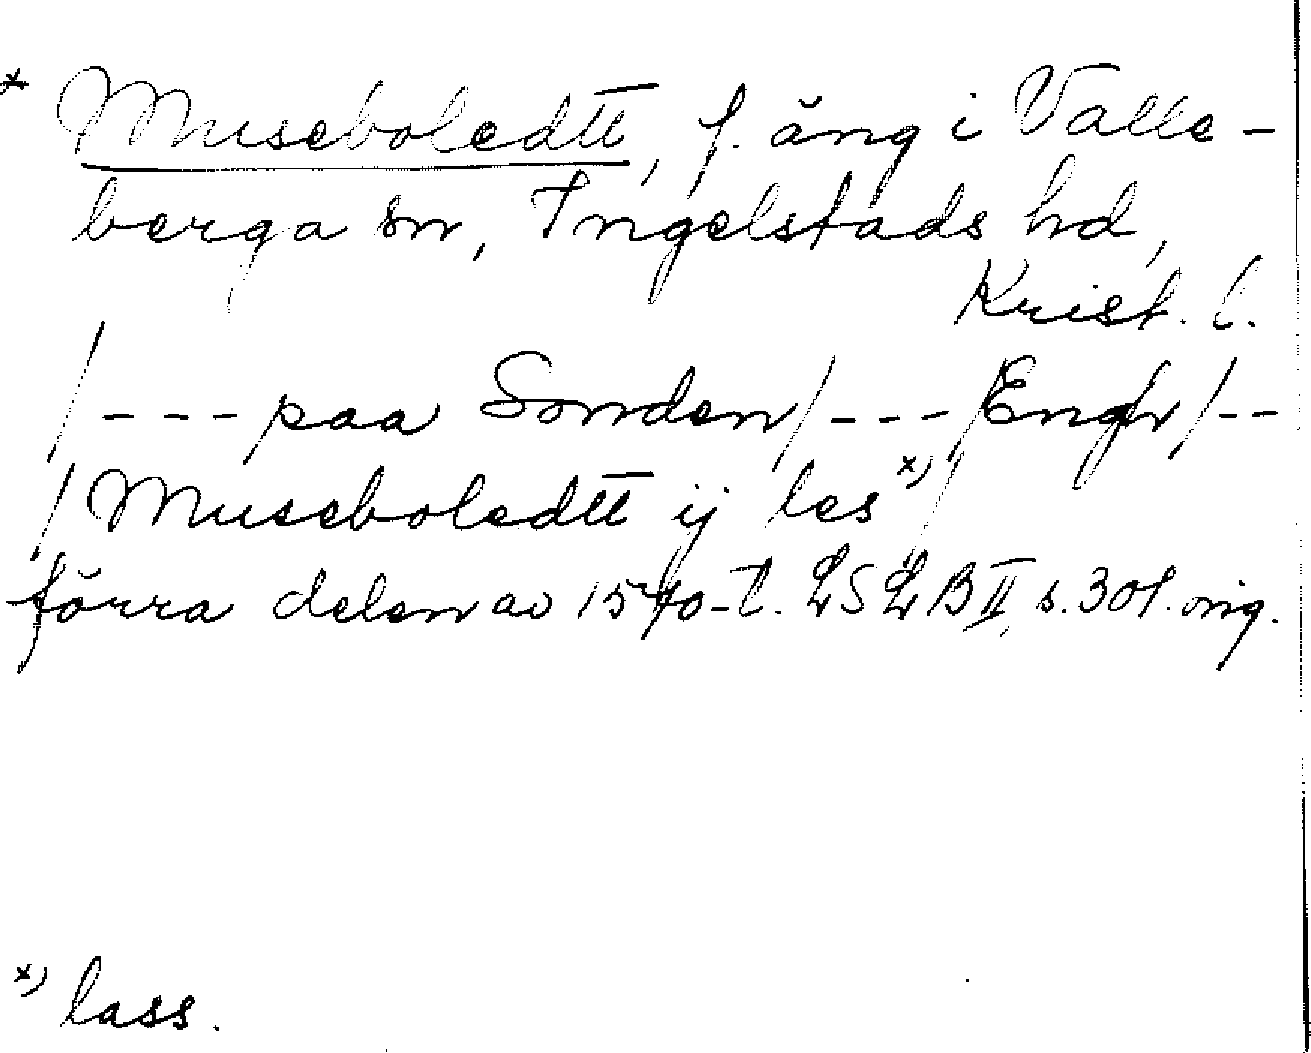 * Museboledtt, f. äng i Valle-
berga sn, Ingelstads hd,
Krist. l.
/--- paa Sonden/ --- /Engh/--
/Museboledtt ij les x)/
förra delen av 1570-t. LSLB II, s. 301. orig.
x) lass.